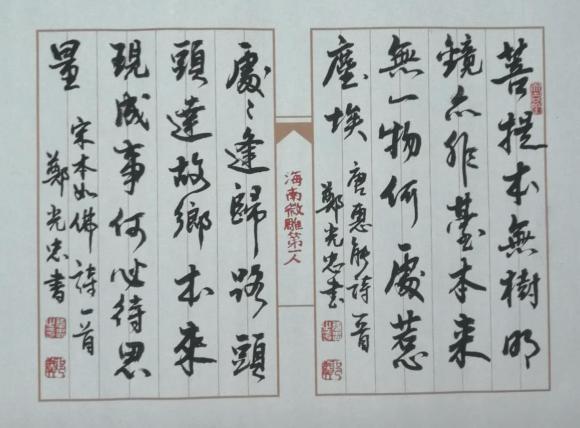 菩提本無樹明
鏡亦非臺本来
無一物何處惹
塵埃
唐惠能詩一首
鄭光忠書
海南微雕第一人
處々逢歸路頭
頭達故鄉本來
現成事何必待思
量
宋本如佛詩一首
鄭光忠書